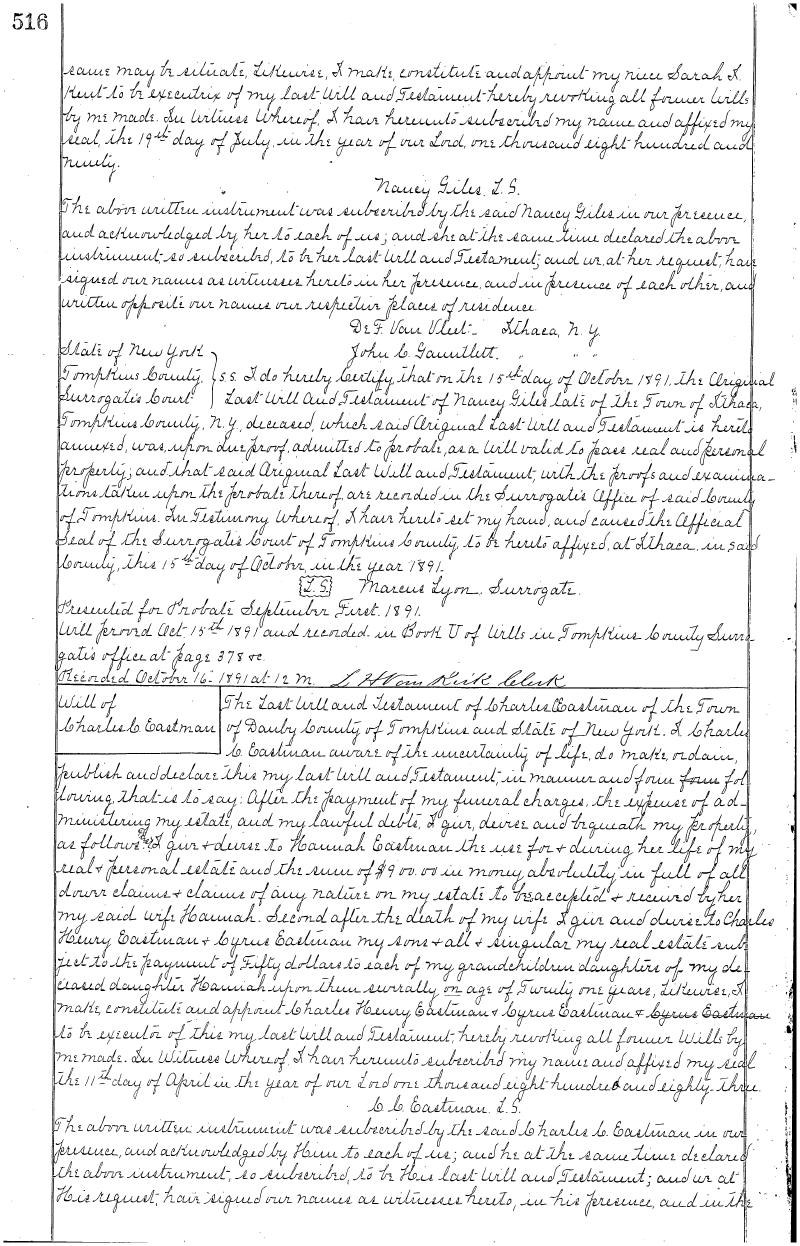 516
same may be situate, Likewise, I make, constitute and appoint my niece Sarah I.
Kent to be executrix of my last Will and Testament hereby revoking all former Wills
by me made. In Witness Whereof, I have hereunto subscribed my name and affixed my
seal, the 19th day of July, in the year of our Lord, one thousand eight hundred and
ninety.
Nancy Giles, L.S.
The above written instrument was subscribed by the said Nancy Giles in our presence,
and acknowledged by her to each of us; and she at the same time declared the above
instrument so subscribed, to be her last Will and Testament; and we, at her request, have
signed our names as witnesses hereto in her presence, and in presence of each other, and
written opposite our names our respective places of residence.
De F. Van Vleet. Ithaca, N.Y.
State of New York John C. Gauntlett. " " "
Tompkins County, } ss. I do hereby Certify that on the 15th day of October 1891, the Original
Surrogate's Court Last Will And Testament of Nancy Giles late of the Town of Ithaca,
Tompkins County, N.Y., deceased, which said Original Last Will and Testament is hereto
annexed, was, upon due proof, admitted to probate, as a Will valid to pass real and personal
property; and that said Original Last Will and Testament, with the proofs and examina-
tions taken upon the probate thereof are recorded in the Surrogate's Office of said County
of Tompkins. In Testimony Whereof, I have hereto set my hand, and caused the Official
Seal of the Surrogate's Court of Tompkins County, to be hereto affixed, at Ithaca, in said
County, this 15th day of October, in the year 1891.
L.S. Marcus Lyon, Surrogate.
Presented for Probate September First 1891.
Will proved Oct 15th 1891 and recorded in Book U of Wills in Tompkins County Surro-
gate's office at page 378 &c.
Recorded October 16. 1891 at 12 M. L H Van Kirk Clerk
Will of
Charles C Eastman
The Last Will and Testament of Charles C Eastman of the Town
of Danby County of Tompkins and State of New York. I Charles
C Eastman aware of the uncertainty of life, do make, ordain,
publish and declare this my last Will and Testament, in manner and form form fol
lowing, that is to say: After the payment of my funeral charges, the expense of ad-
ministering my estate, and my lawful debts, I give, devise and bequeath my property,
as follows I give & devise to Hannah Eastman the use for & during her life of my
real & personal estate and the sum of $900.00 in money absolutely in full of all
dower claims & claims of any nature on my estate to be accepted & received by her
my said wife Hannah. Second after the death of my wife I give and devise to Charles
Henry Eastman & Cyrus Eastman my sons & all & singular my real estate sub-
ject to the payment of Fifty dollars to each of my grandchildren daughters of my de-
ceased daughter Hannah upon them severally on age of Twenty one years, Likewise, I
make, constitute and appoint Charles Henry Eastman & Cyrus Eastman & Cyrus Eastman
to be executor of this my last Will and Testament, hereby revoking all former Wills by
me made. In Witness Whereof, I have hereunto subscribed my name and affixed my seal
the 11th day of April in the year of our Lord one thousand eight hundred and eighty-three.
C C Eastman. L.S.
The above written instrument was subscribed by the said Charles C. Eastman in our
presence, and acknowledged by Him to each of us; and he at the same time declared
the above instrument, so subscribed, to be His last Will and Testament; and we at
His request, have signed our names as witnesses hereto, in his presence, and in the